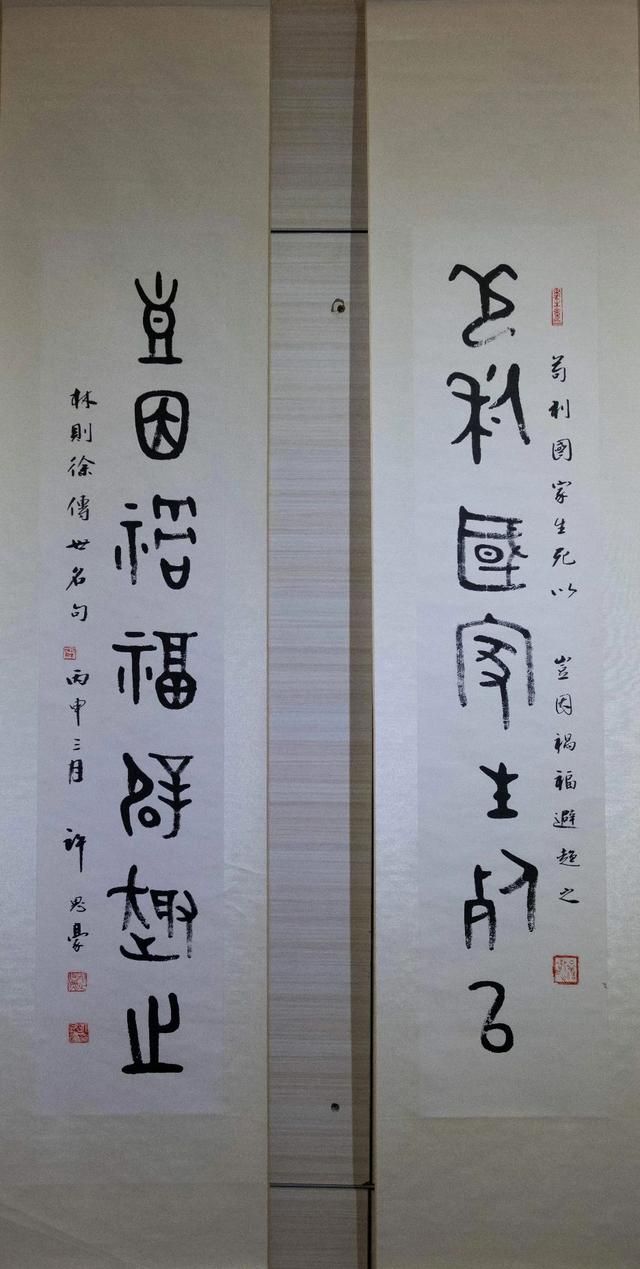 苟利國家生死以 豈因禍福避趨之
苟利國家生死以
豈因禍福避趨之
林則徐傳世名句 丙申三月 許思豪